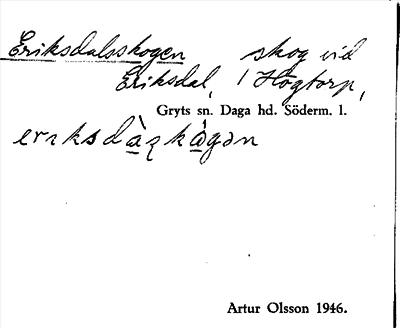 Eriksdalsskogen skog vid
Eriksdal, 1 Högtorp,
Gryts sn. Daga hd. Söderm. l.
erıksdàʂkágən
Artur Olsson 1946.